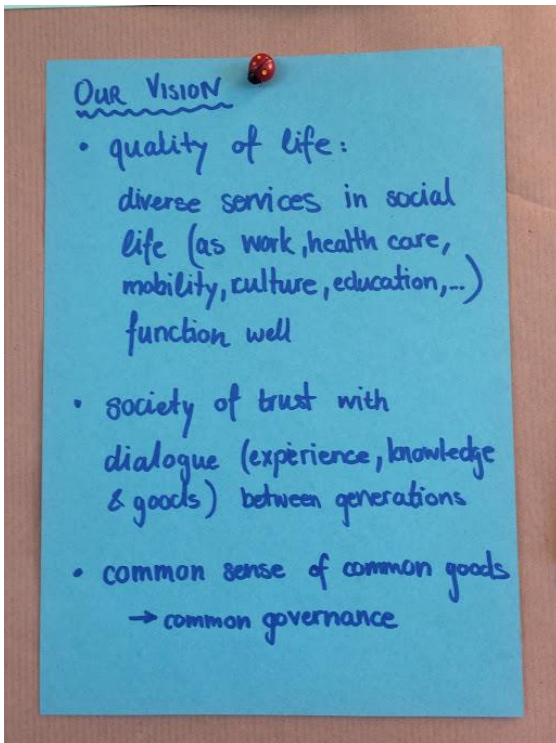 OUR VISION
• quality of life:
diverse services in social
life (as work, health care,
mobility, culture, education,...)
function well
• society of trust with
dialogue (experience, knowledge
& goods) between generations
• common sense of common goods
→ common governance